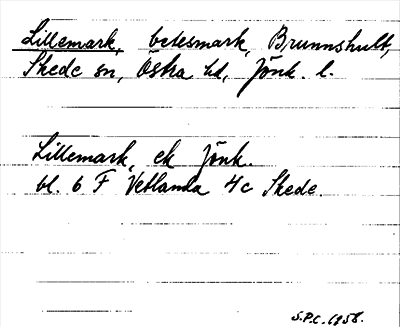 Lillemark, betesmark, Brunnshult,
Skede sn, Östra hd, Jönk. l.
Lillemark, ek Jönk.
bl. 6 F Vetlanda 4c Skede.
S.P.C. 1958.